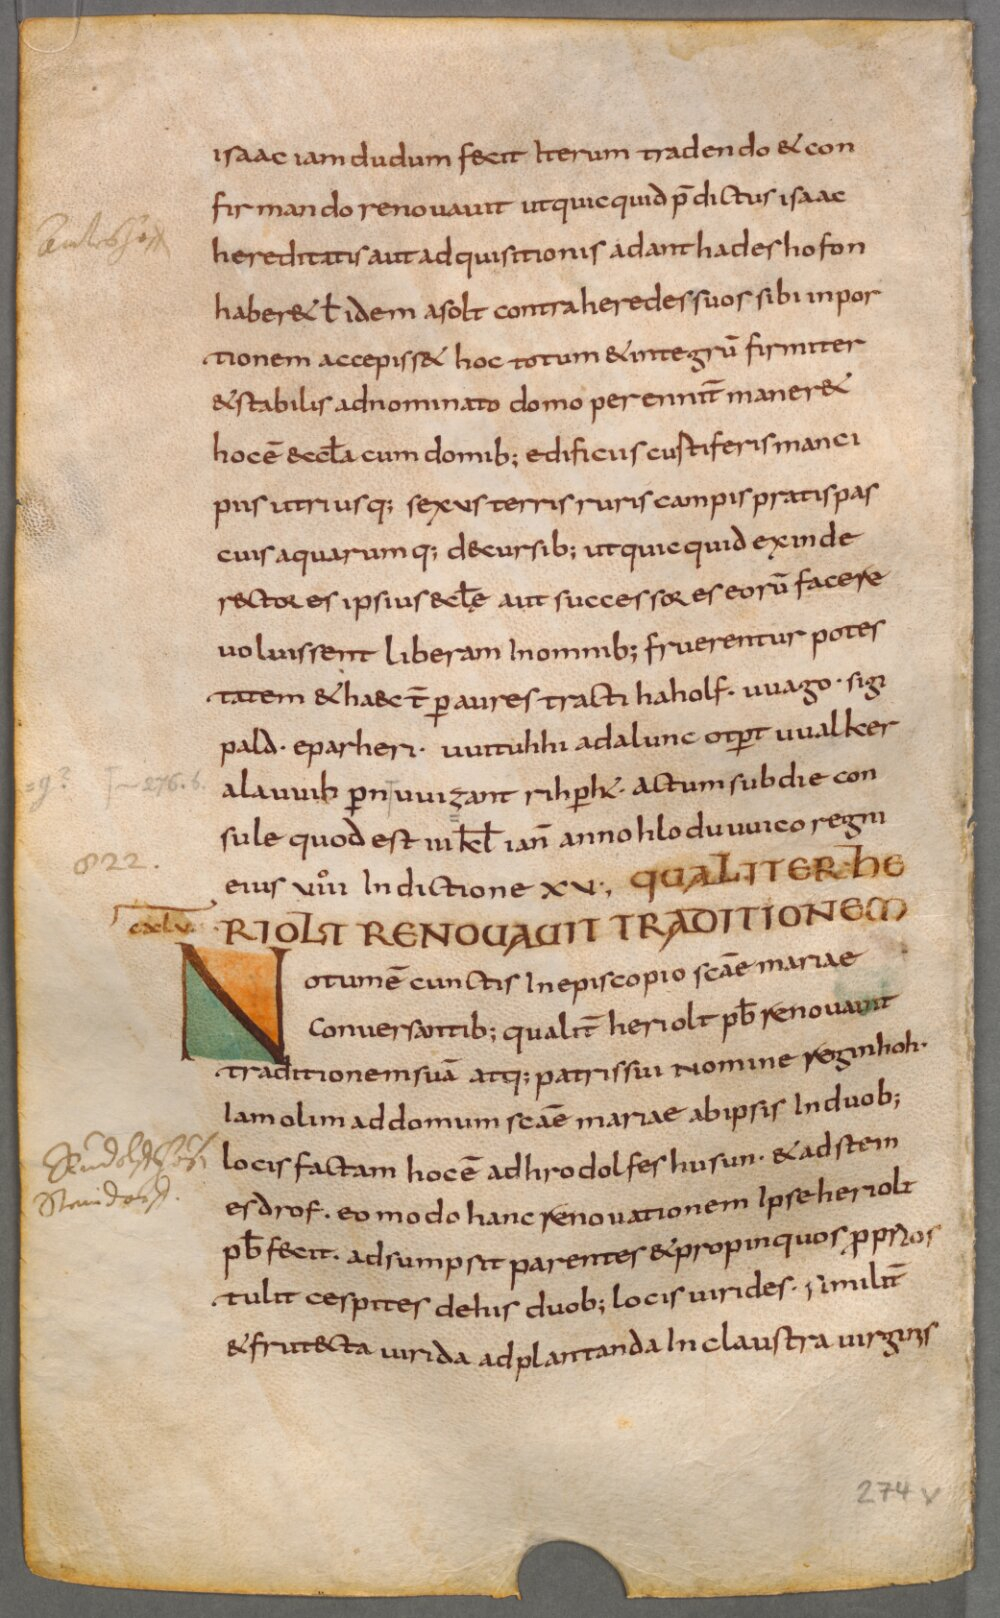 isaac iam dudum fecit Iterum tradendo & con
firmando renouauit ut quicquid p̄dictus isaac
hereditatis aut adquisitionis ad anthadeshofon
haber& ł idem asolt contra heredes suos sibi in por
tionem accepiss& hoc totum & integrū firmiter
& stabilis ad nominato domo perennit̄ maner&
hoc ē &ccła cum domib; edificiis custiferis manci
piis utriusq; sexus terris ruris campis pratis pas
cuis aquarumq; decursib; ut quicquid exinde
rectores ipsius &cłę aut successores eorū facere
uoluissent liberam In omnib; fruerentur potes
tatem & haec t̄ ꝑ aures tracti haholf· uuago· sigi
pald· eparheri· uuituhhi adalunc otꝑt uualker
alauuih ꝑn uuizant rihꝑht· actum sub die con
sule quod est iii kł ian̄ anno hloduuuico regni
eius VIIII Indictione XV·, QUALITER HE
RIOLT RENOUAUIT TRADITIONEM
cxlv.
Notum ē cunctis In episcopio scāe mariae
conuersantib; qualit̄ heriolt pb̄ renouauit
traditionem suā atq; patris sui nomine reginhoh·
Iam olim ad domum scāe mariae ab ipsis In duob;
locis factam hoc ē ad hrodolfeshusun· & ad stem
esdrof· eo modo hanc renouationem Ipse heriolt
pb̄ fecit· adsumpsit parentes & propinquos ꝓprios
tulit cespites de his duob; locis uirides· similit̄
& frutecta uirida ad plantanda In claustra uirginis
822.
276.6.
274 v